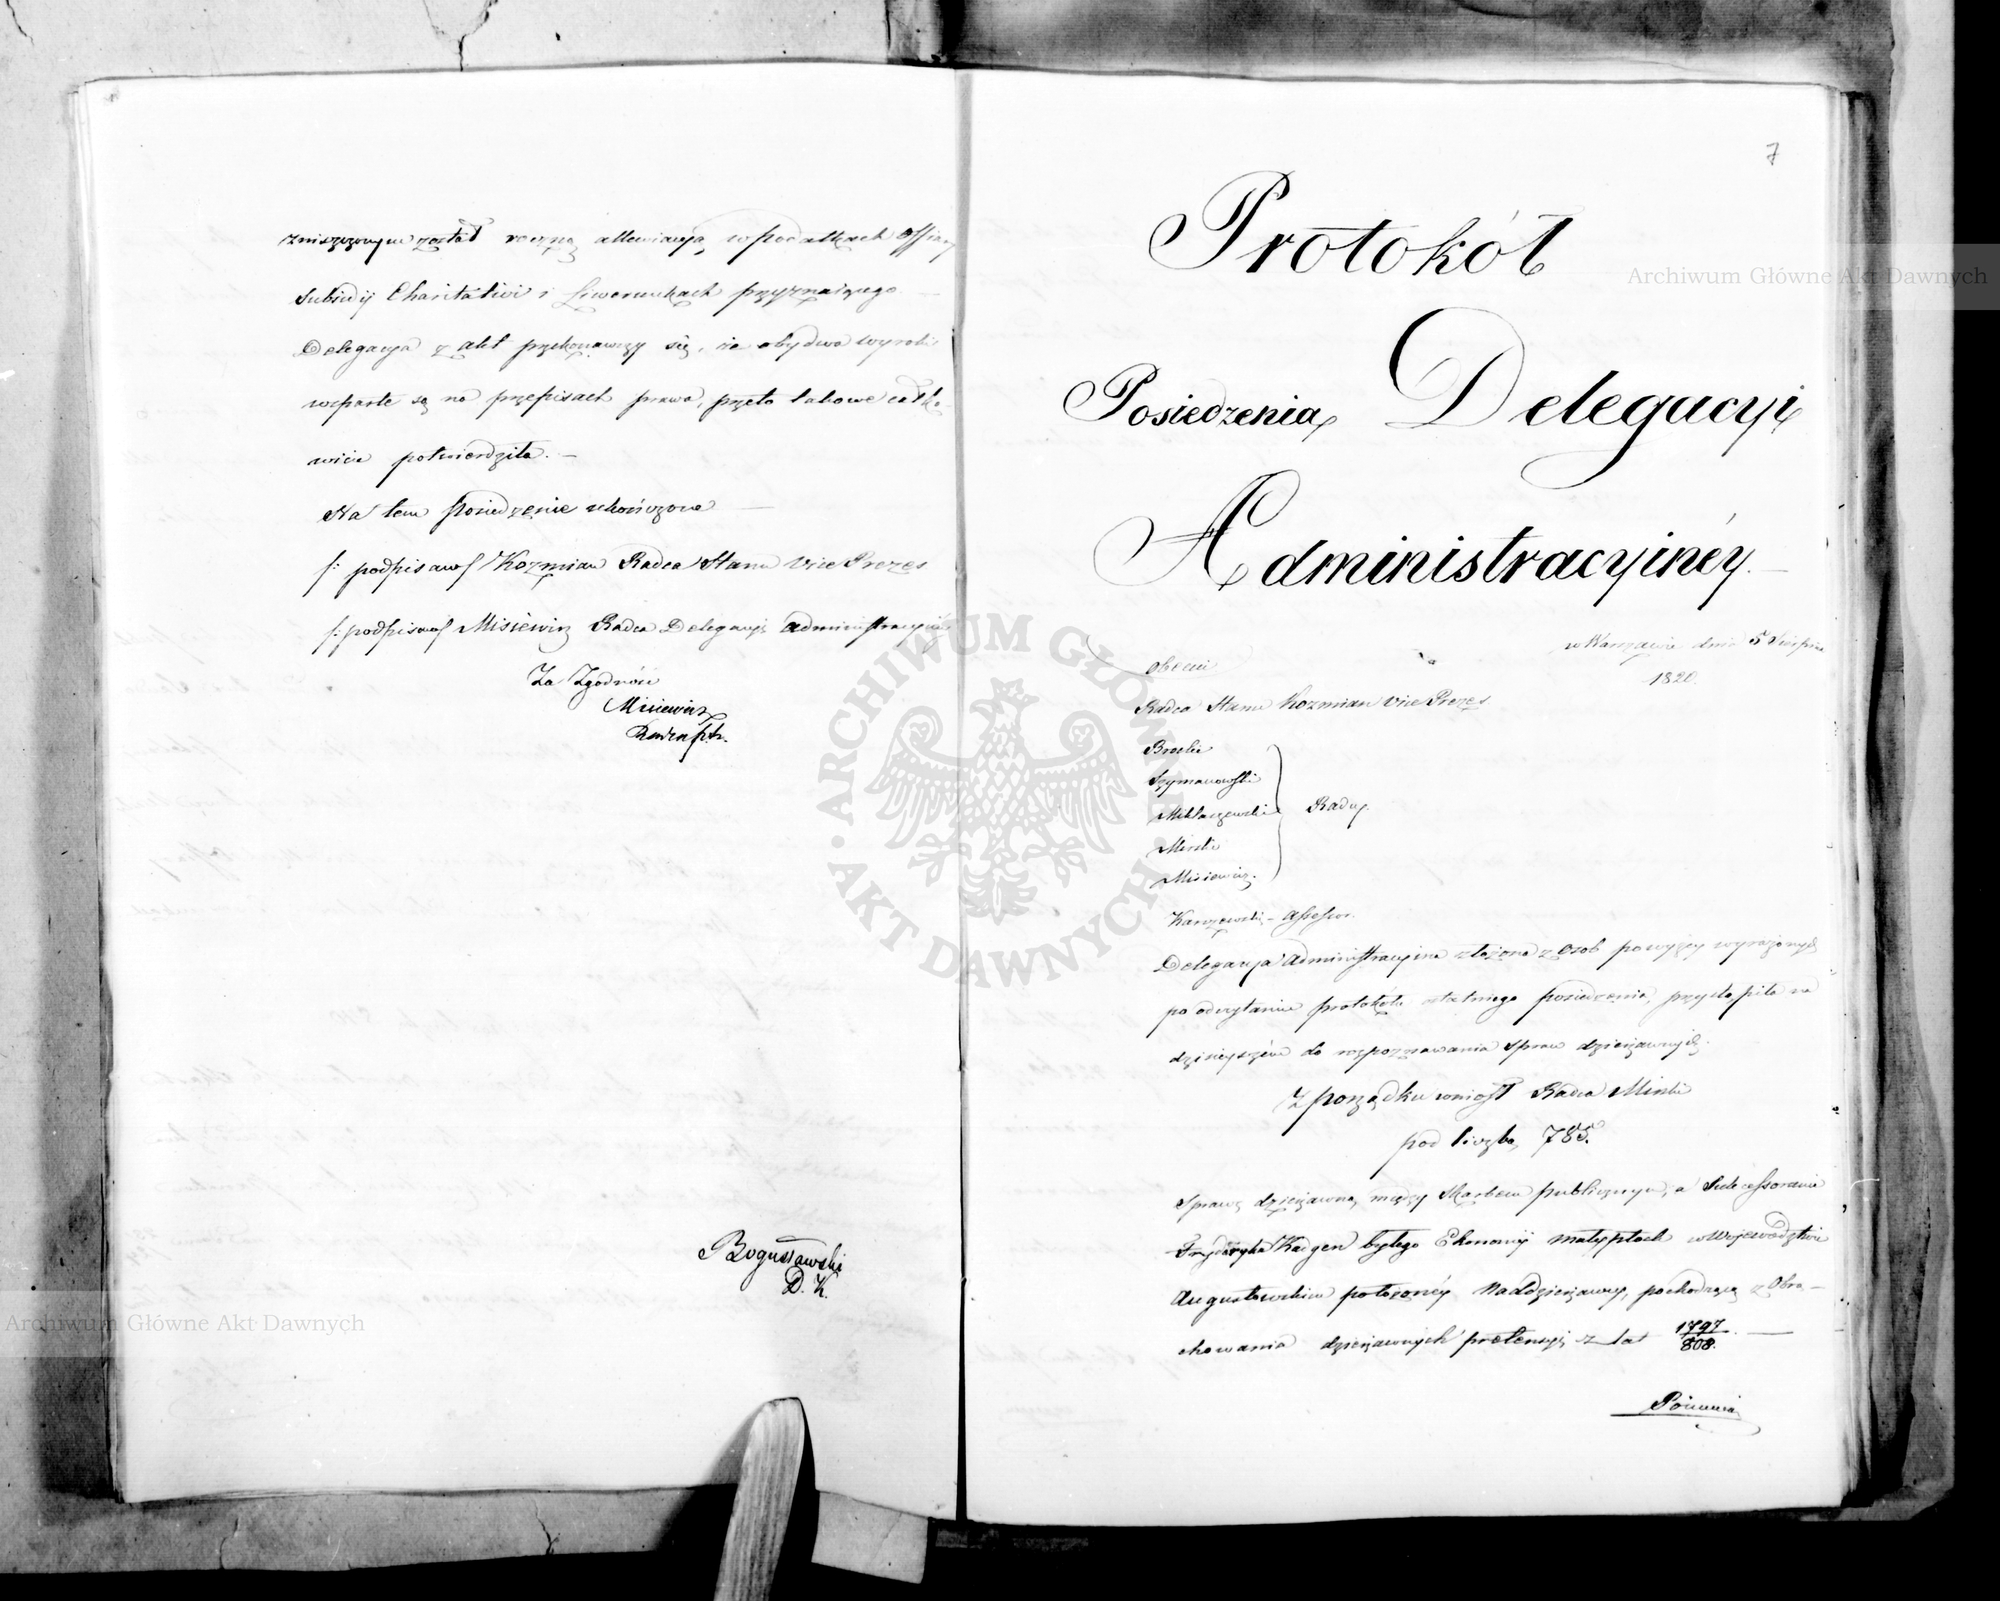 zniszczonym został roczną allewiacyą, w podatkach Offiary
Subsidij Charitativi i Liwerunkach przyznaiącego
Delegacya z akt przekonawszy się, że obydwa wyroki
wsparte są na przepisach prawa, przeto takowe całko
wicie potwierdziła. —
Na tem posiedzenie ukończone —
/: podpisano / Kozmian Radca Stanu Vice Prezes
/: podpisano / Misiewicz Radca Delegacyi Administracyiney
Za Zgodność
Misiewicz
Radca
Bogusławski
D. K.
7
Protokół
Posiedzenia Delegacyi
Administracyinéy. —
w Warszawie dnia 5 Sierpnia
1820.
Obecni
Radca Stanu Kozmian Vice Prezes
Brocki
Szymanowski
Mikłaszewski
Radcy.
Minski
Misiewicz.
Karczewski – Assessor.
Delegacya Administracyina złożona z Osob powyżey wyrażonych
po odczytaniu protokółu ostatniego posiedzenia, przystąpiła na
dzisieyszém do rozpoznawania spraw dzierżawnych.
Z porządku wniosł Radca Minski
pod liczbą 785.
Sprawę dzierżawną, między Skarbem publicznym, a Sukcessorami
Fryderyka Kadgen byłego Ekonomij w Województwie
Augustowskim położonéy Naddzierżawcy, pochodzącą z Obra-
chowania dzierżawnych pretensyi z lat 1797/808. —